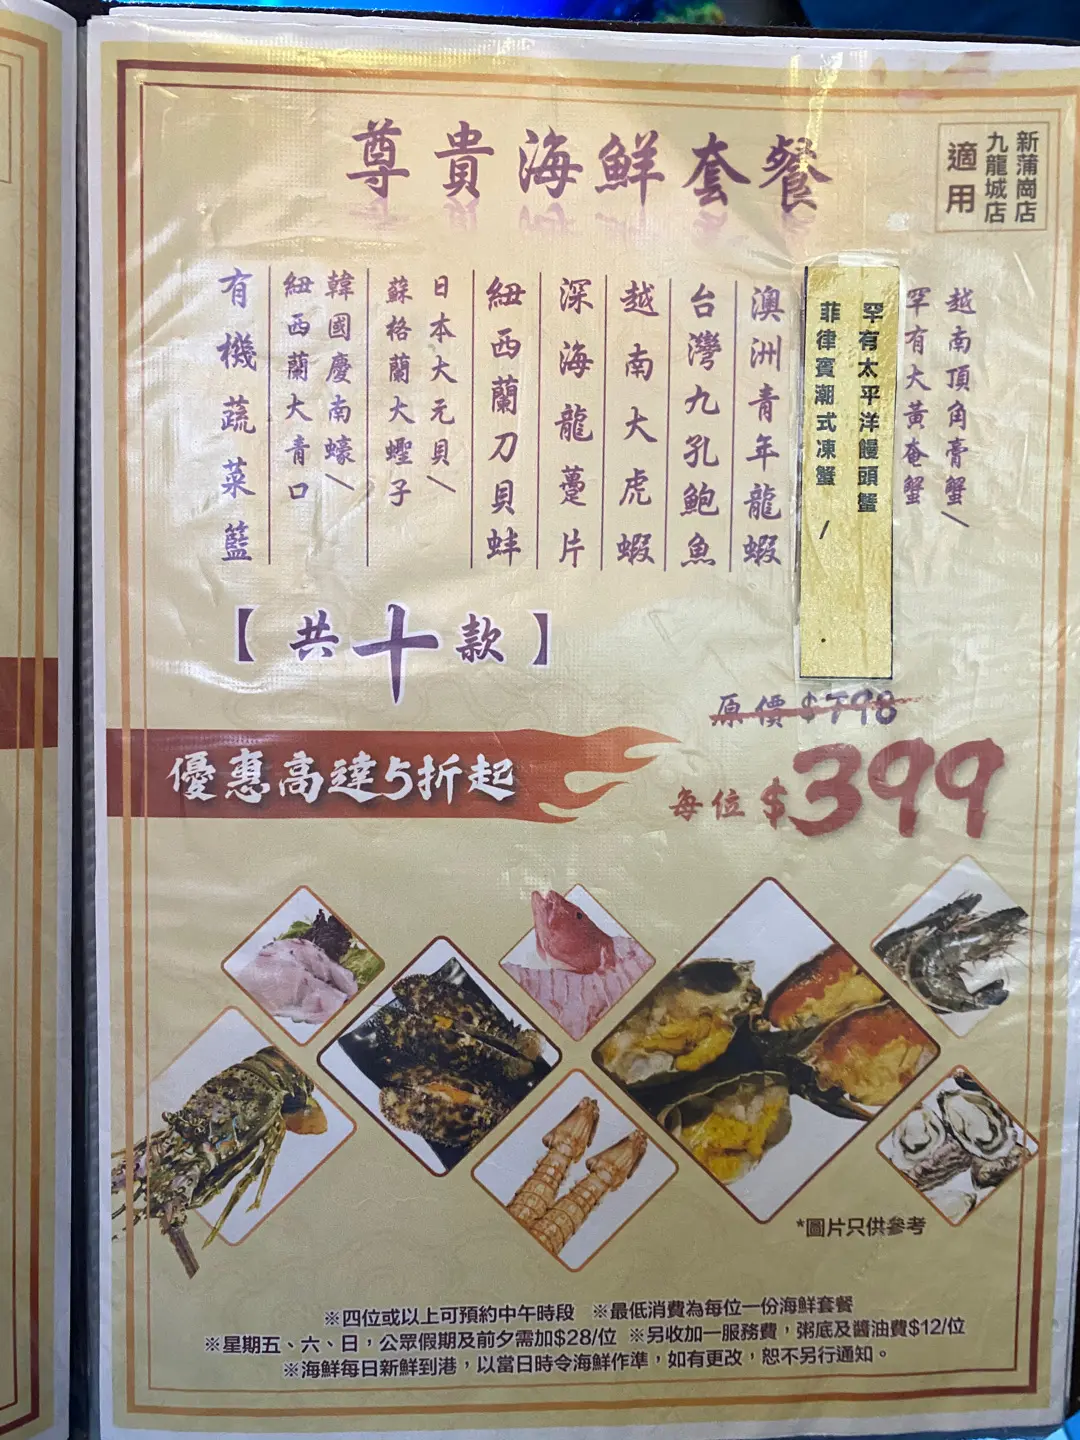 尊貴海鮮套餐
新蒲崗店
九龍城店
適用
越南頂角膏蟹/
罕有大黃奄蟹
罕有太平洋饅頭蟹
菲律賓潮式凍蟹 /
澳洲青年龍蝦
台灣九孔鮑魚
越南大虎蝦
深海龍躉片
紐西蘭刀貝蚌
日本大元貝/
蘇格蘭大蟶子
韓國慶南蠔/
紐西蘭大青口
有機蔬菜籃
【共十款】
原價$798
優惠高達5折起
每位$399
*圖片只供參考
※四位或以上可預約中午時段 ※最低消費為每位一份海鮮套餐
※星期五、六、日，公眾假期及前夕需加$28/位 ※另收加一服務費，粥底及醬油費$12/位
※海鮮每日新鮮到港，以當日時令海鮮作準，如有更改，恕不另行通知。